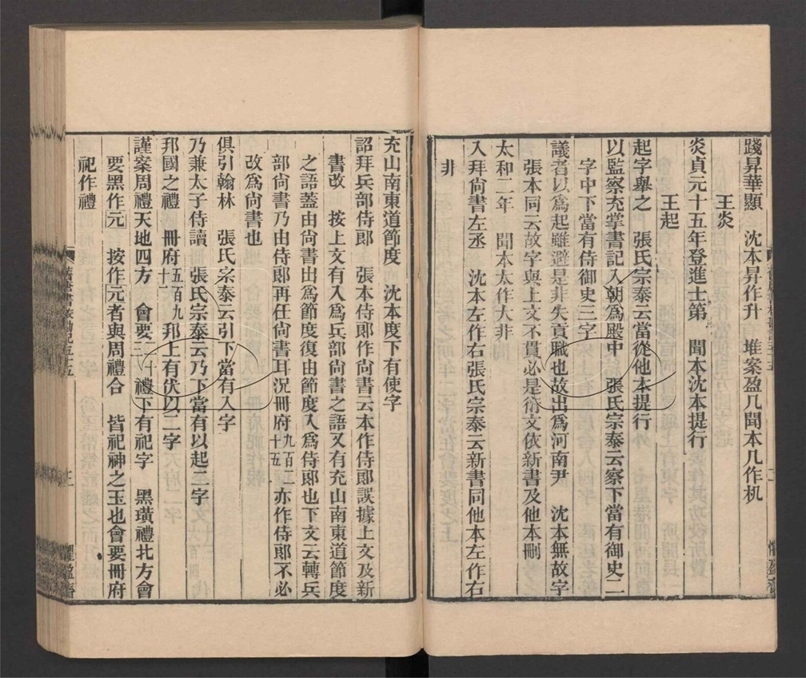 踐昇華顯 沈本昇作升 堆案盈几聞本几作机
王炎
炎貞元十五年登進士第 聞本沈本提行
王起
起字舉之 張氏宗泰云當從他本提行
以監察充掌書記入朝爲殿中 張氏宗泰云察下當有御史二
字中下當有侍御史三字
議者以爲起雖避是非失貢職也故出爲河南尹 沈本無故字
張本同云故字與上文不貫必是衍文依新書及他本刪
太和二年 聞本太作大非
入拜尙書左丞 沈本左作右張氏宗泰云新書同他本左作右
非
充山南東道節度 沈本度下有使字
詔拜兵部侍郞 張本侍郞作尙書云本作侍郞誤據上文及新
書改 按上文有入爲兵部尙書之語又有充山南東道節度
之語蓋由尙書出爲節度復由節度入爲侍郞也下文云轉兵
部尙書乃由侍郞再任尙書耳況冊府九百二十五亦作侍郞不必
改爲尙書也
俱引翰林 張氏宗泰云引下當有入字
乃兼太子侍讀 張氏宗泰云乃下當有以起二字
邦國之禮 冊府五百九十二邦上有伏以二字
謹案周禮天地四方 會要二十禮下有祀字 黑璜禮北方會
要黑作元 按作元者與周禮合 皆祀神之玉也會要冊府
祀作禮
三
懼盈齋